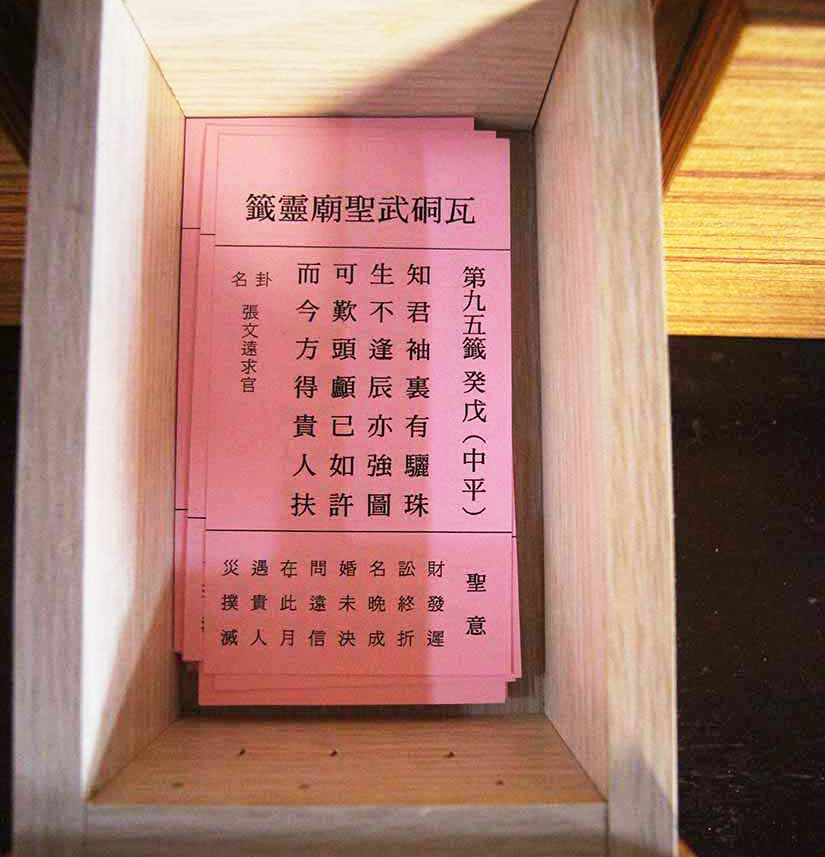 瓦硐武聖廟靈籤
第九五籤 癸戊(中平)
知君袖裏有驪珠
生不逢辰亦強圖
可歎頭顱已如許
而今方得貴人扶
卦名
張文遠求官
聖意
財發遲
訟終折
名晚成
婚未決
問遠信
在此月
遇貴人
災撲滅